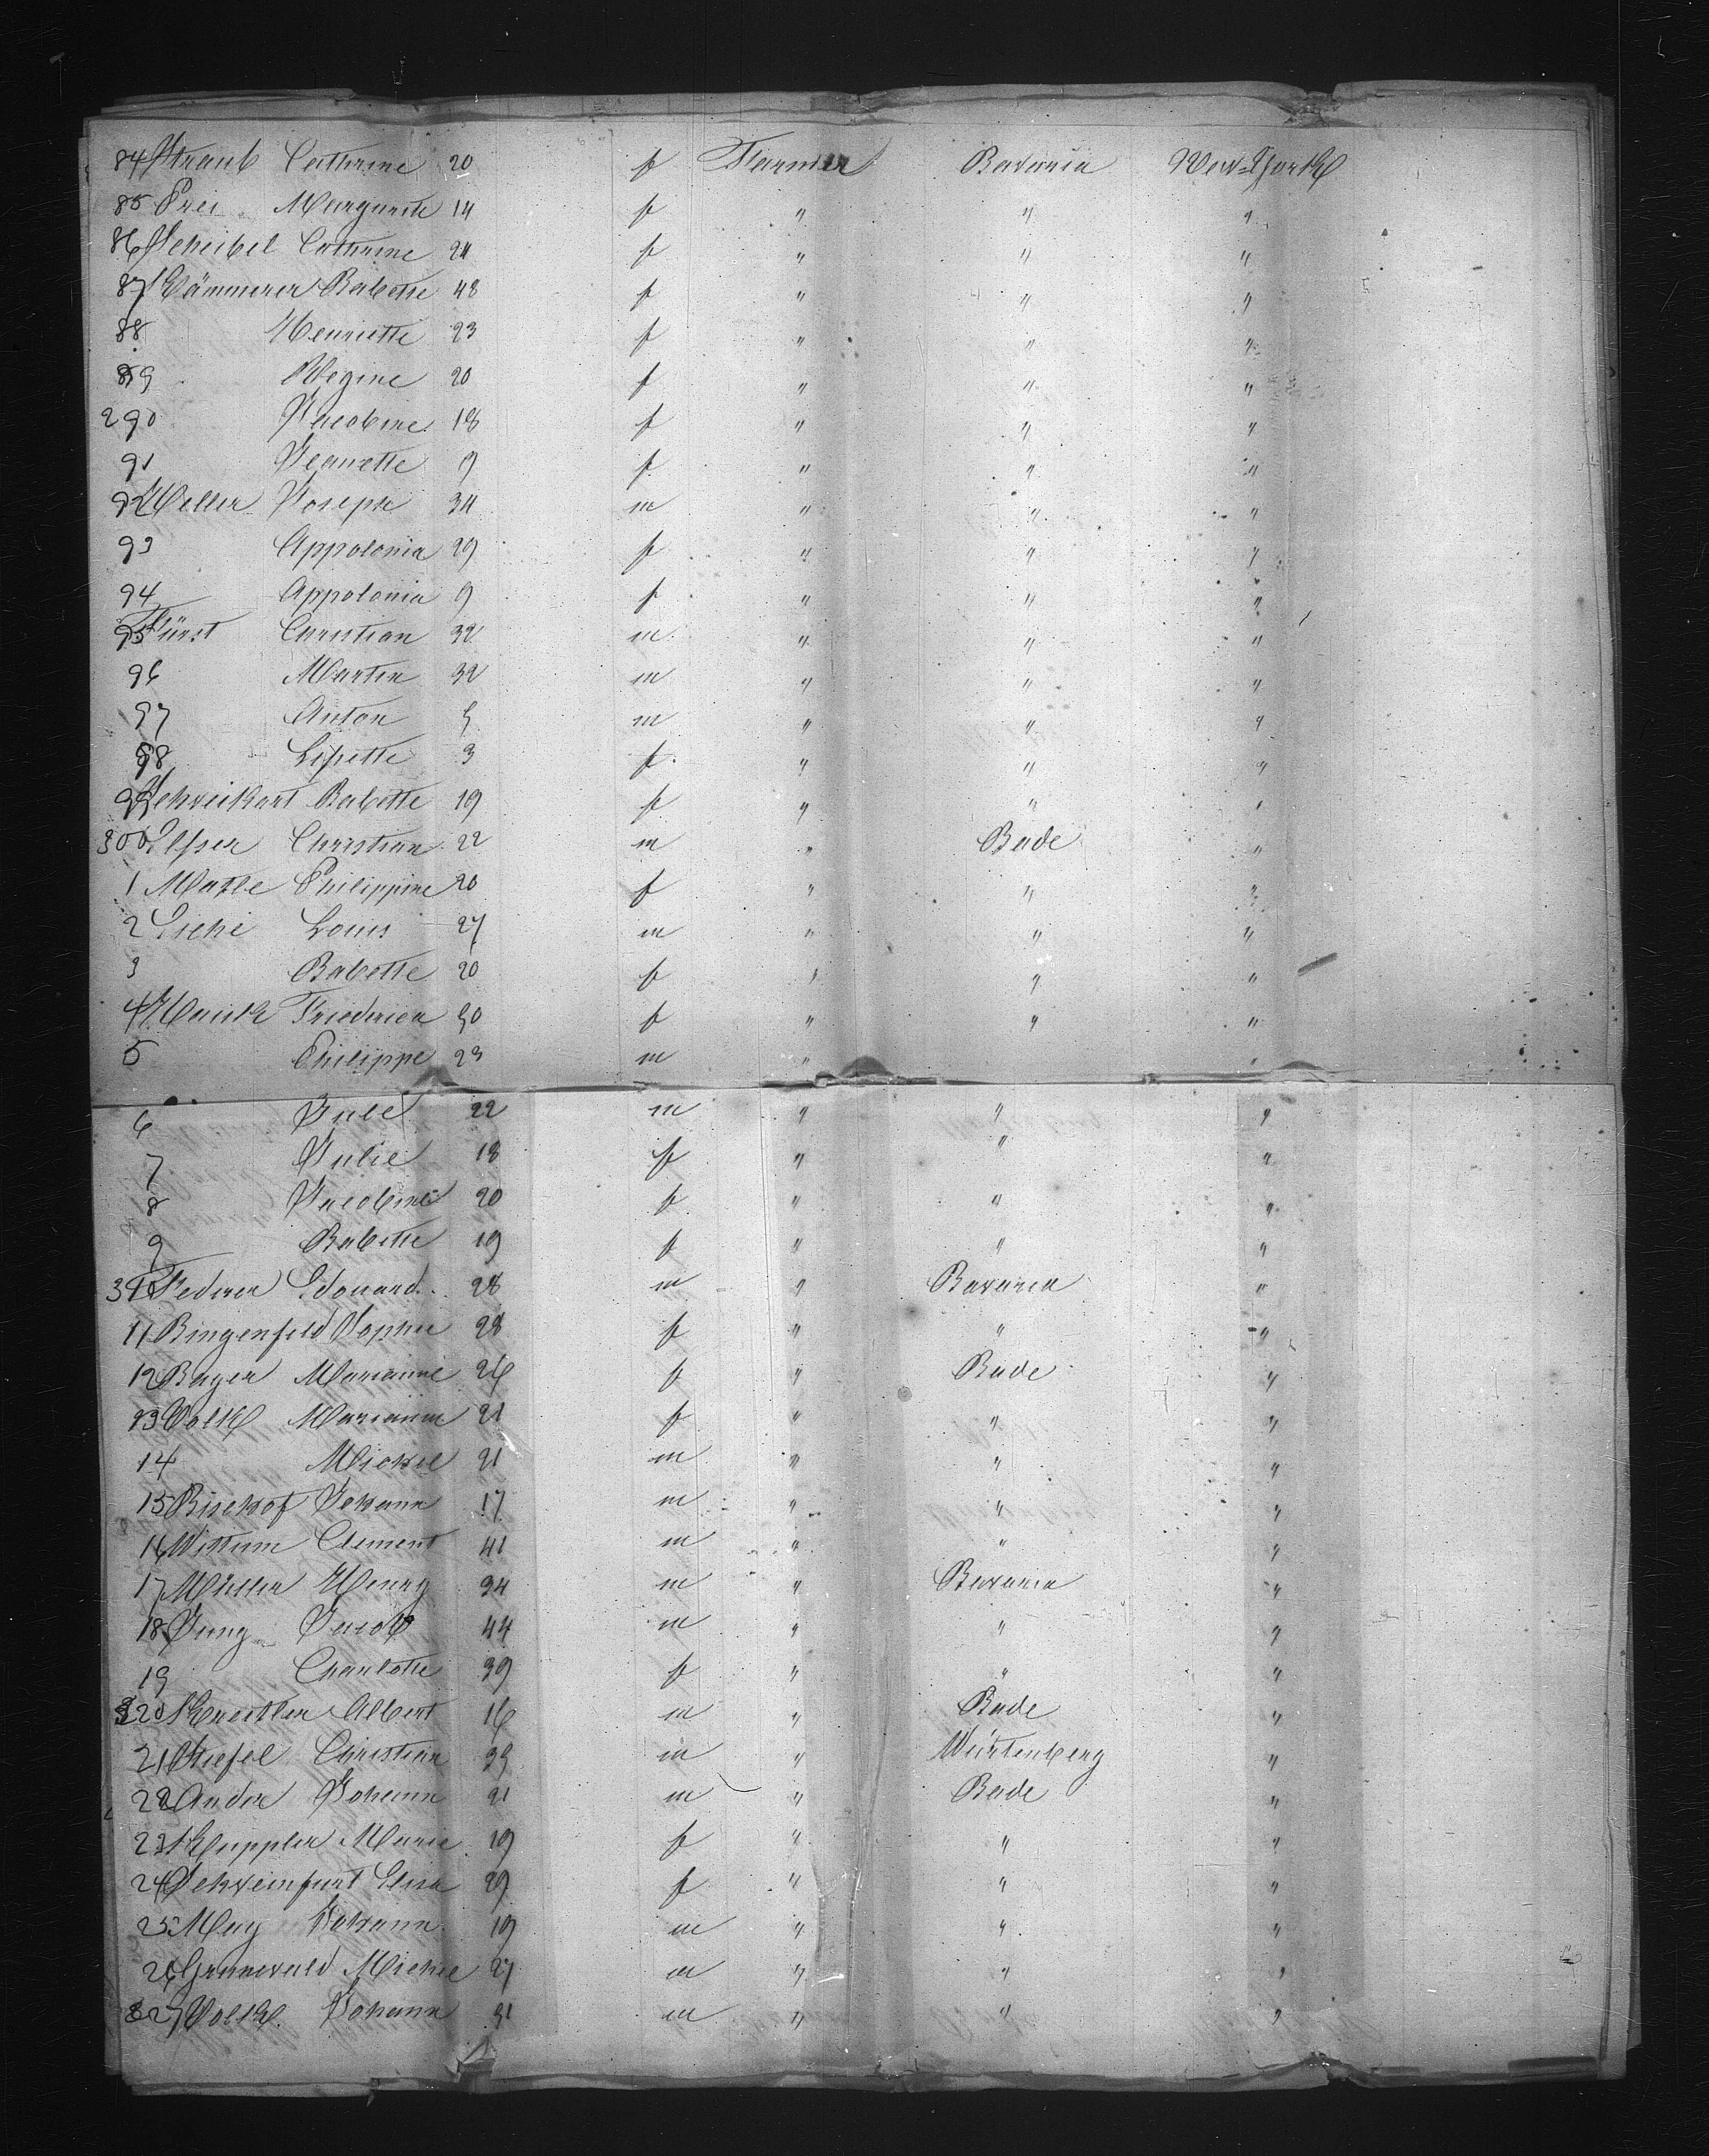 84 Straub Cathrine 20 f Farmer Bavaria New-Yorck
85 Frei Margarete 14 f " " "
86 Scheibel Cathrine 24 f " " "
87 Kämmerer Babette 48 f " " "
88 Henriette 23 f " " "
89 Regine 20 f " " "
290 Jacobine 18 f " " "
91 Jeanette 9 f " " "
92 Heller Joseph 34 m " " "
93 Appolonia 29 f " " "
94 Appolonia 9 f " " "
95 Fürst Christian 32 m " " "
96 Martin 32 m " " "
97 Anton 5 m " " "
98 Lisette 3 f " " "
99 Schweikart Babette 19 f " " "
300 Elser Christian 22 m " Bade "
1 Philippine 20 f " " "
2 Louis 27 m " " "
3 Babette 20 f " " "
4 Hauck Friederica 50 f " " "
5 Philippe 23 m " "
6 22 m " " "
7 Julie 18 f " " "
8 Jacobine 20 f " " "
9 Babette 19 f " " "
310 Federer Edouard 28 m " Bavaria "
11 Bingenfeld Sophie 28 f " " "
12 Bayer Marianne 26 f " Bade "
13 Volk Marianne 21 f " " "
14 Michel 21 m " " "
15 Bischof Johann 17 m " " "
16 Wittum Clement 41 m " " "
17 Müller Henry 34 m " Bavaria "
18 Jung Jacob 44 m " " "
19 Charlotte 39 f " " "
320 Albert 16 m " Bade "
21 Christian 39 m " Würtenberg "
22 Johann 21 m " Bade "
23 Kuppler Marie 19 f " " "
24 Schweinfurt Elisa 29 f " " "
25 May Johann 19 m " " "
26 Grunewald Michel 27 m " " "
327 Volk Johann 31 m " " "